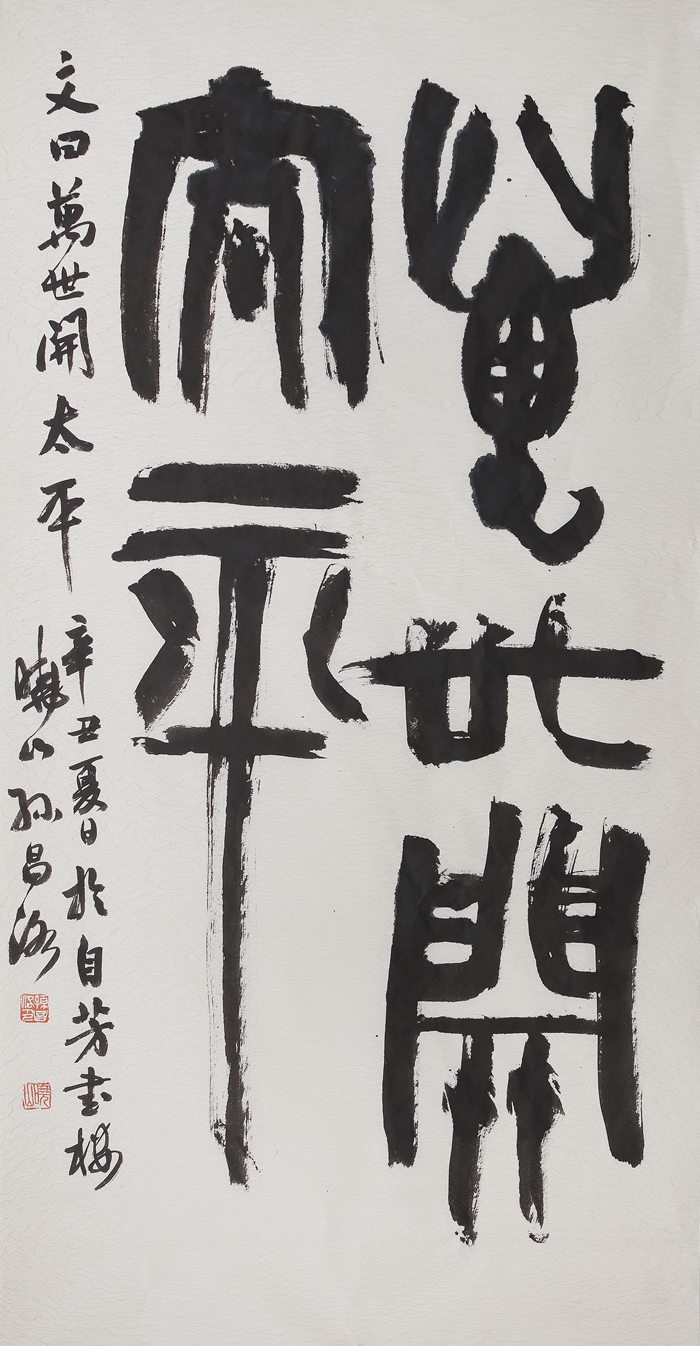 萬世開
太平
文曰萬世開太平
辛丑夏日於自芳書楼
曉山孫昌洛